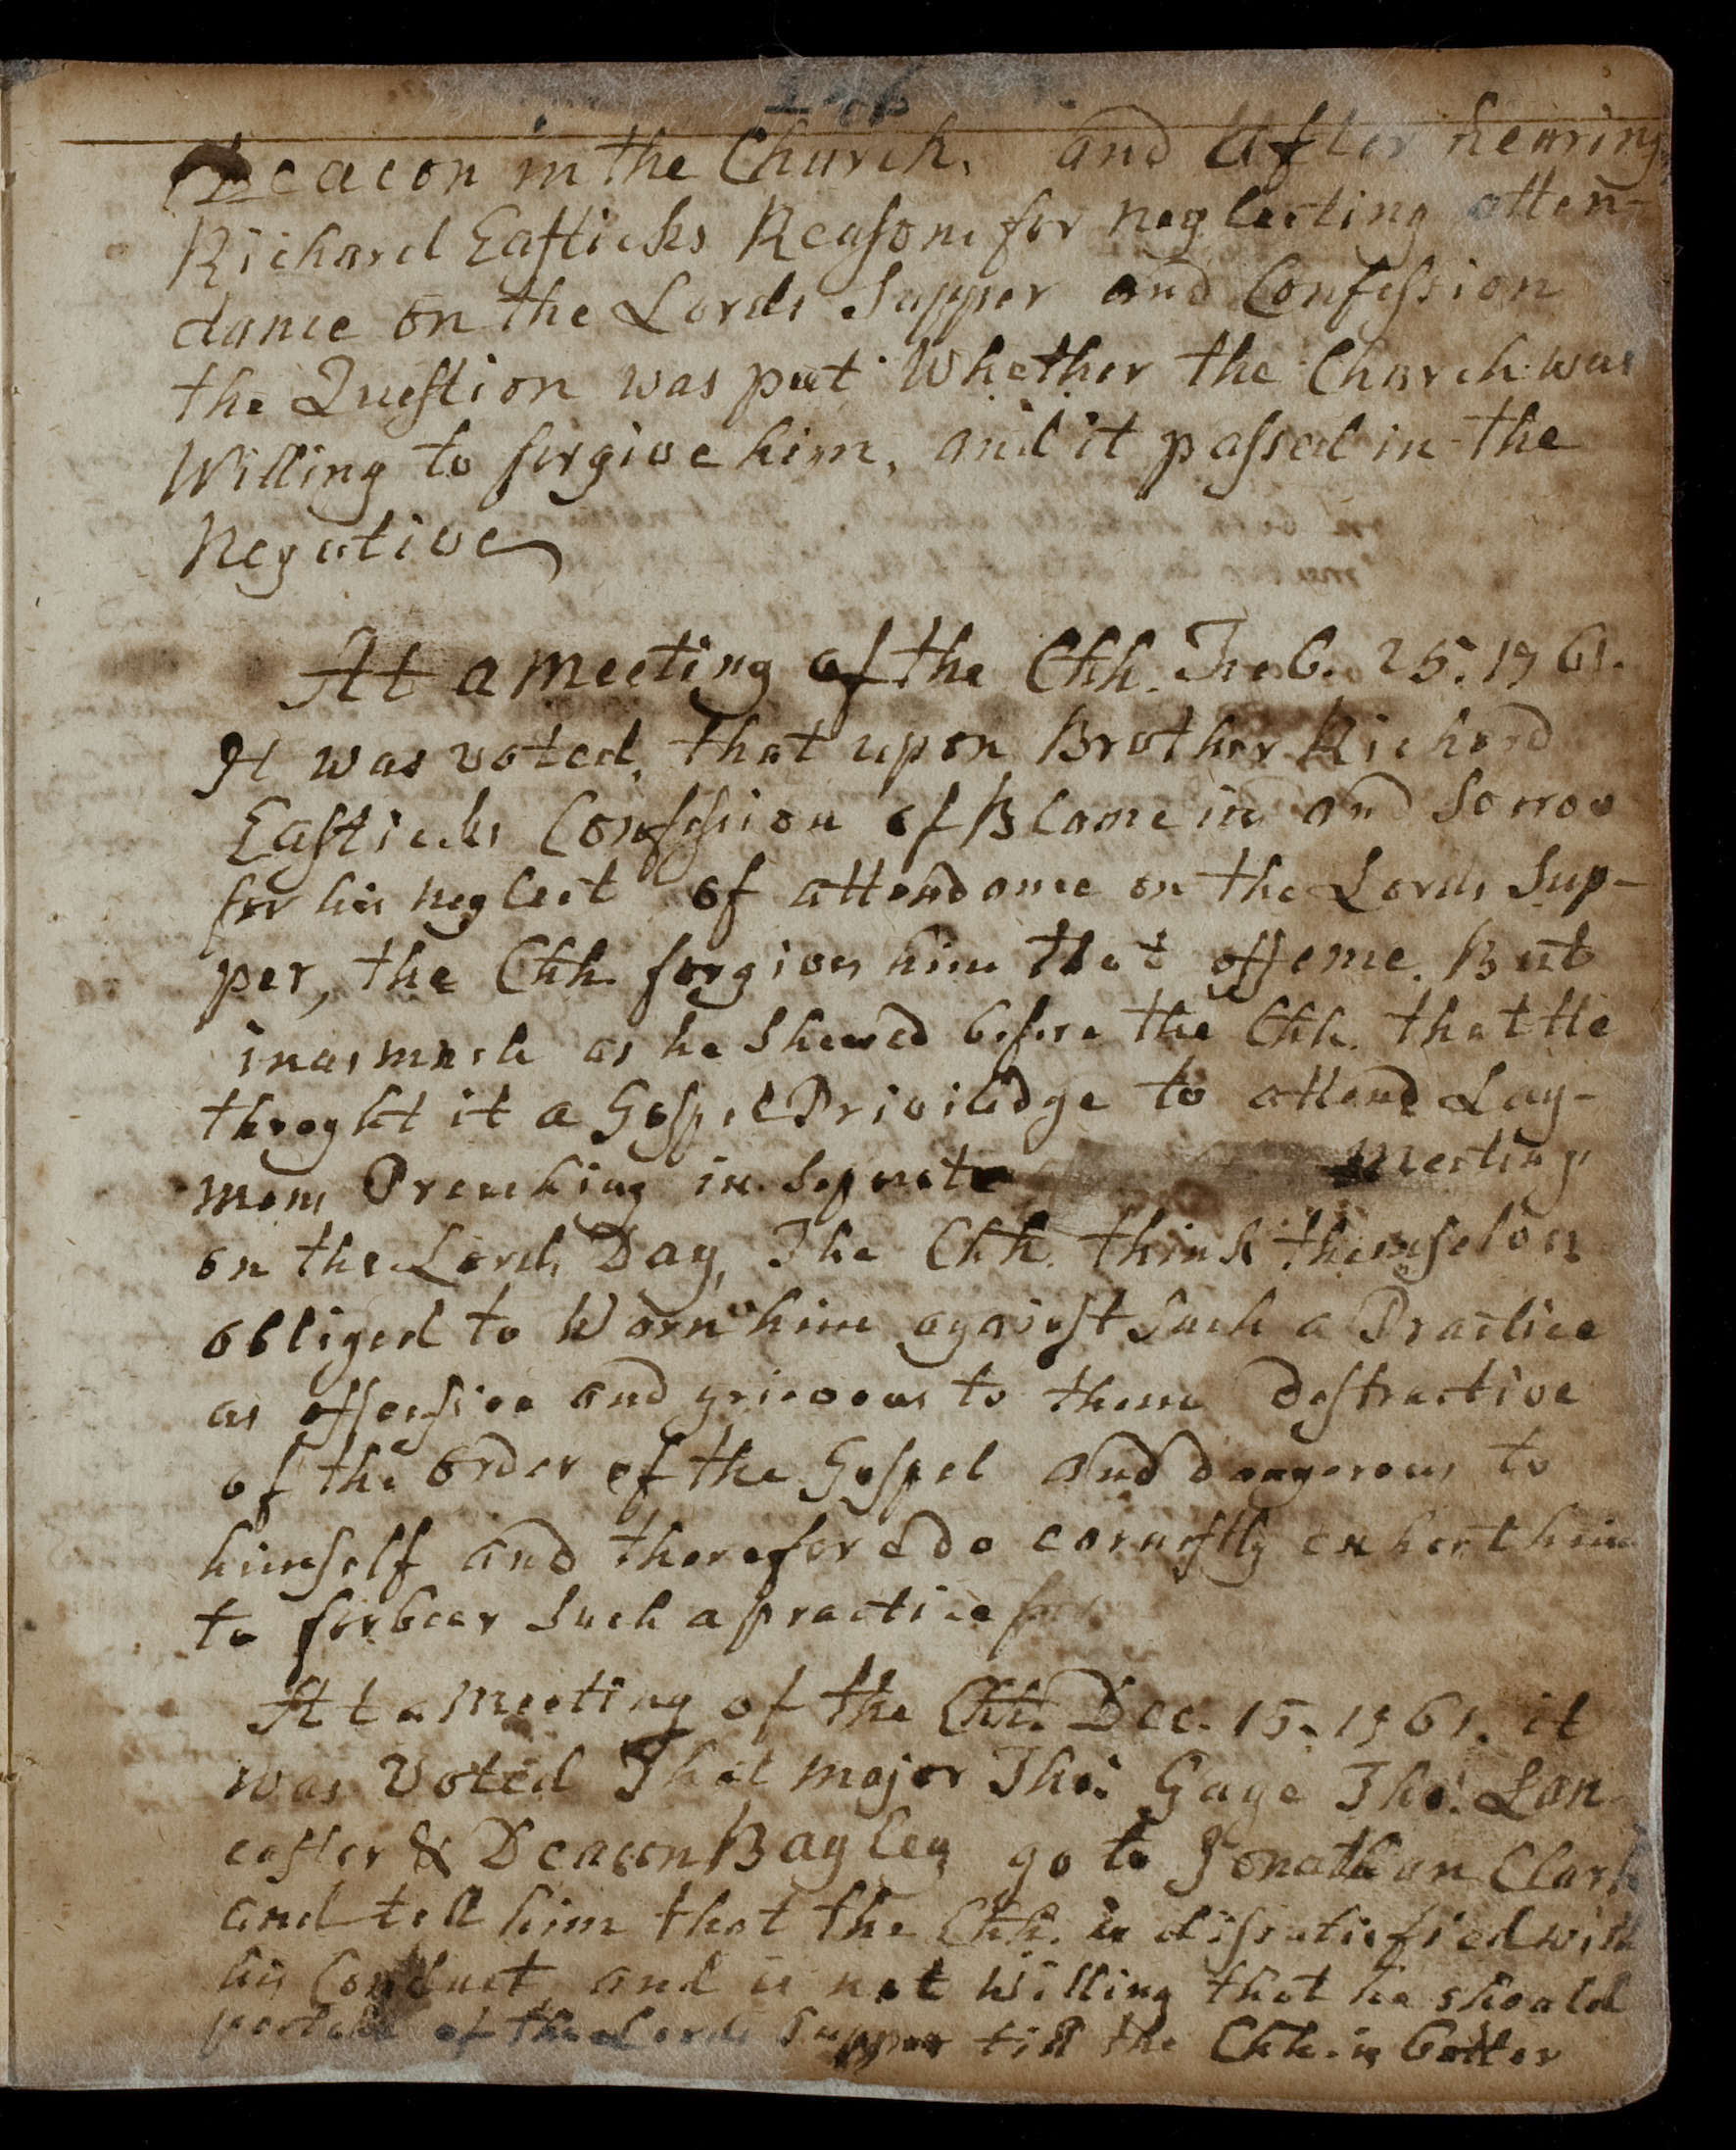 Deacon in the Church, and after hearing
Richard Eastick's Reasons for neglecting atten-
dance on the Lords Supper and Confession
the Question was put Whether the Church was
Willing to forgive him, and it passed in the
Negative
At a meeting of the Chh. Feb. 25. 1761.
It was voted, that upon Brother Richard
Easticks Confession of Blame in and Sorrow
for his neglect of attendance on the Lords Sup-
per, the Chh. forgives him that offence. But
inasmuch as he Shewed before the Chh. that He
thought it a Gospel Priviledge to attend Lay-
mens Preaching in Separate Meetings
on the Lords Day, The Chh. think themselves
obliged to Warn him against Such a Practice
as offensive and grievous to them destructive
of the order of the Gospel and dangerous to
himself and therefore do earnestly exhort him
to forbear Such a practice
At a meeting of the Chh. Dec. 15. 1761. it
was Voted That major Tho: Gage Tho: Lan
caster & Deacon Bayley go to Jonathan Clark
and tell him that the Chh. is dissatisfied with
his Conduct, and is not Willing that he should
partake of the Lords Supper till the Chh. is better